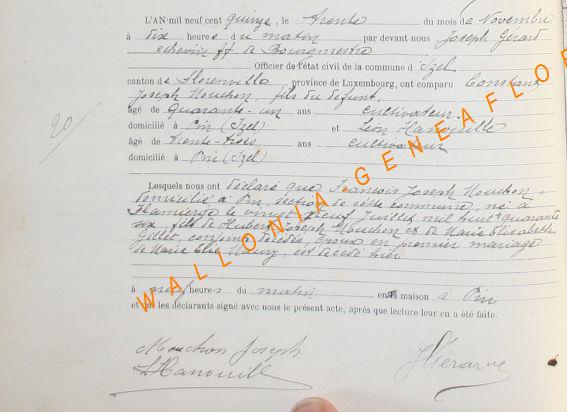 L'AN mil neuf cent quinze, le trente du mois de Novembre
à dix heures du matin par devant nous Joseph Gérard
échevin ff de Bourgmestre
Officier de l'état civil de la commune d'Izel
canton de Florenville, province de Luxembourg, ont comparu Constant
Joseph Mouchon, fils du défunt,
âgé de quarante-un ans cultivateur
domicilié à Pin (Izel) et Léon Hanouille
âgé de trente-trois ans cultivateur
domicilié à Pin (Izel)
20/
Lesquels nous ont déclaré que François Joseph Mouchon,
domicilié à Pin, section de cette commune, né à
Flamierge le vingt neuf Juillet mil huit quarante
six, fils de Hubert Joseph Mouchon et de Marie Elisabeth
Gillet, conjoints décédés, époux en premier mariage
de Marie, est décédé hier
à neuf heures du matin en maison à Pin
et les déclarants signé avec nous le présent acte, après que lecture leur en a été faite.
Mouchon Joseph
L Hanouille
WALLONIA.GENEAFLOR